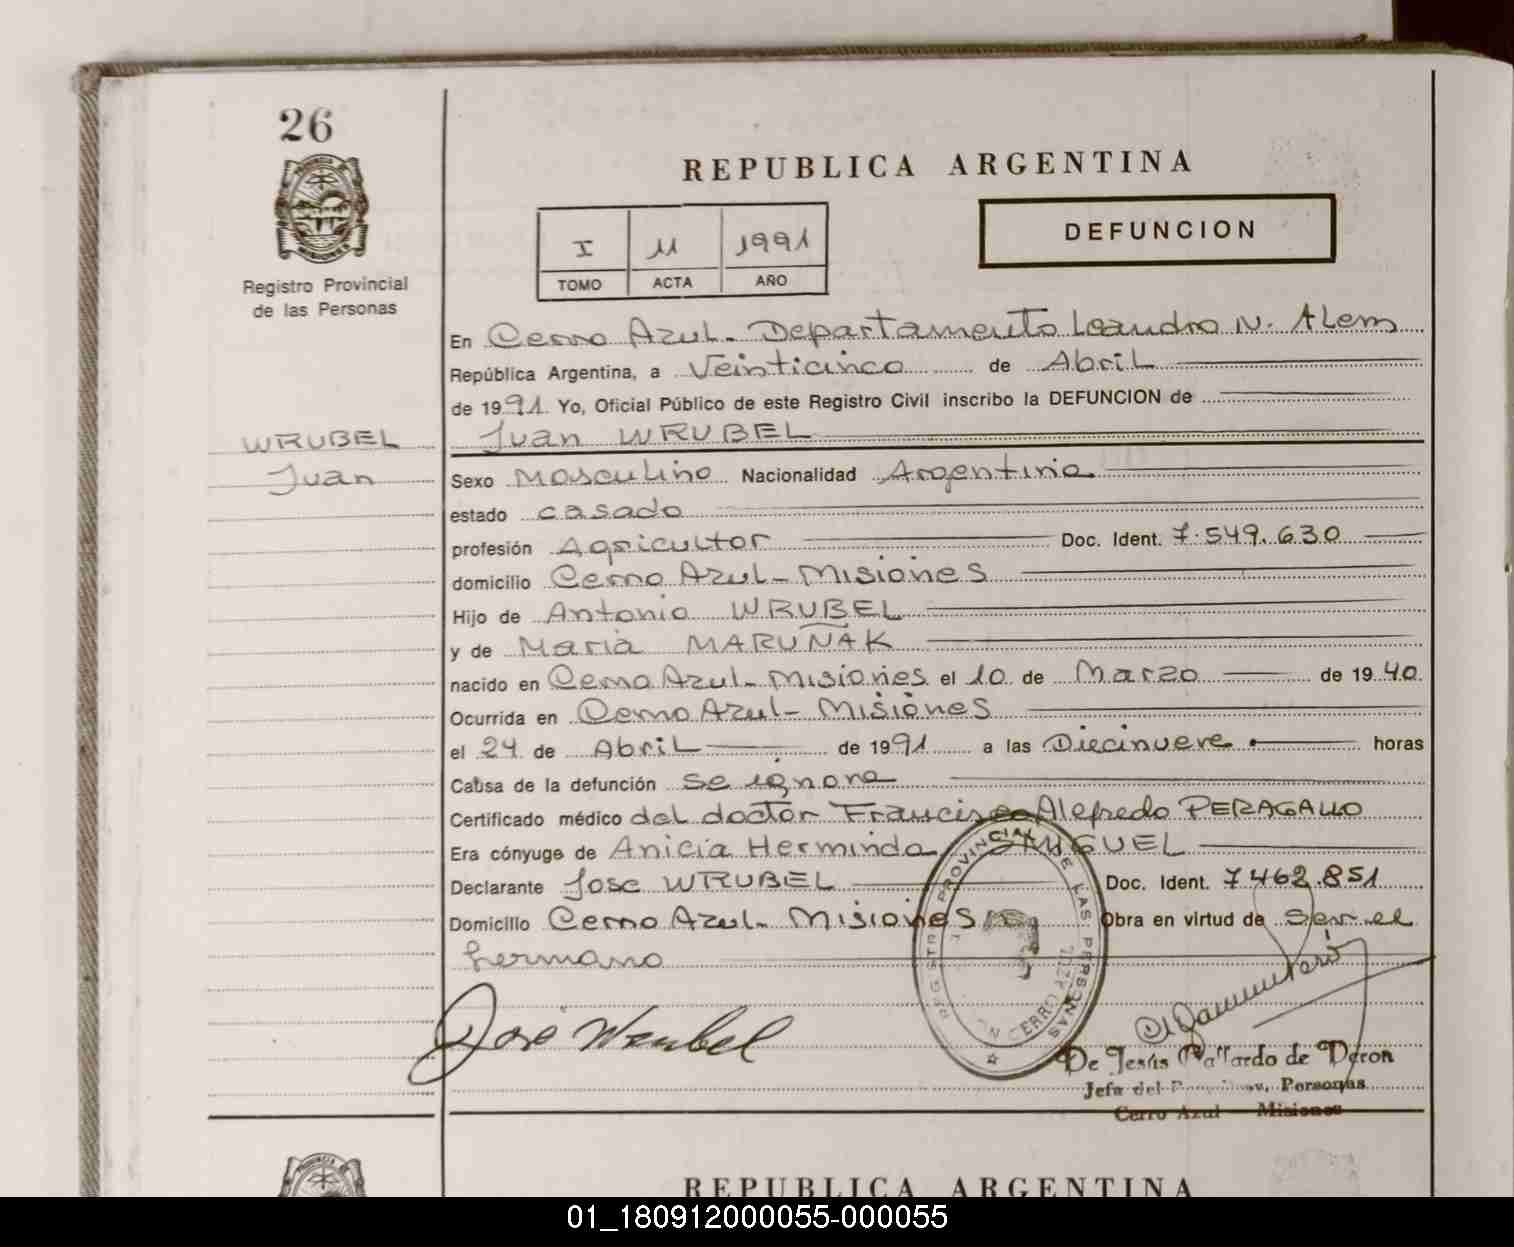 26
REPUBLICA ARGENTINA
I 11 1991
TOMO ACTA AÑO
DEFUNCION
Registro Provincial
de las Personas
En Cerro Azul - Departamento Leandro N. Alem
República Argentina, a Veinticinco de Abril
de 1991. Yo, Oficial Público de este Registro Civil inscribo la DEFUNCION de
WRUBEL
Juan
Juan WRUBEL
Sexo Masculino Nacionalidad Argentina
estado casado
profesión Agricultor Doc. Ident. 7.549.630
domicilio Cerro Azul - Misiones
Hijo de Antonio WRUBEL
y de Maria MARUÑAK
nacido en Cerro Azul - Misiones el 10 de Marzo de 1940.
Ocurrida en Cerro Azul - Misiones
el 24 de Abril de 1991 a las Diecinueve horas
Causa de la defunción se ignora
Certificado médico del doctor Francisco Alefredo PERAGALLO
Era cónyuge de Anicia Herminda
Declarante Jose WRUBEL Doc. Ident. 7.462.851
Domicilio Cerro Azul - Misiones Obra en virtud de ser el
hermano
REGISTRO PROVINCIAL DE LAS PERSONAS
CERRO AZUL
José Wrubel
De Jesús Gallardo de Deron
Jefa del Personas
Cerro Azul Misiones
REPUBLICA ARGENTINA
01_180912000055-000055